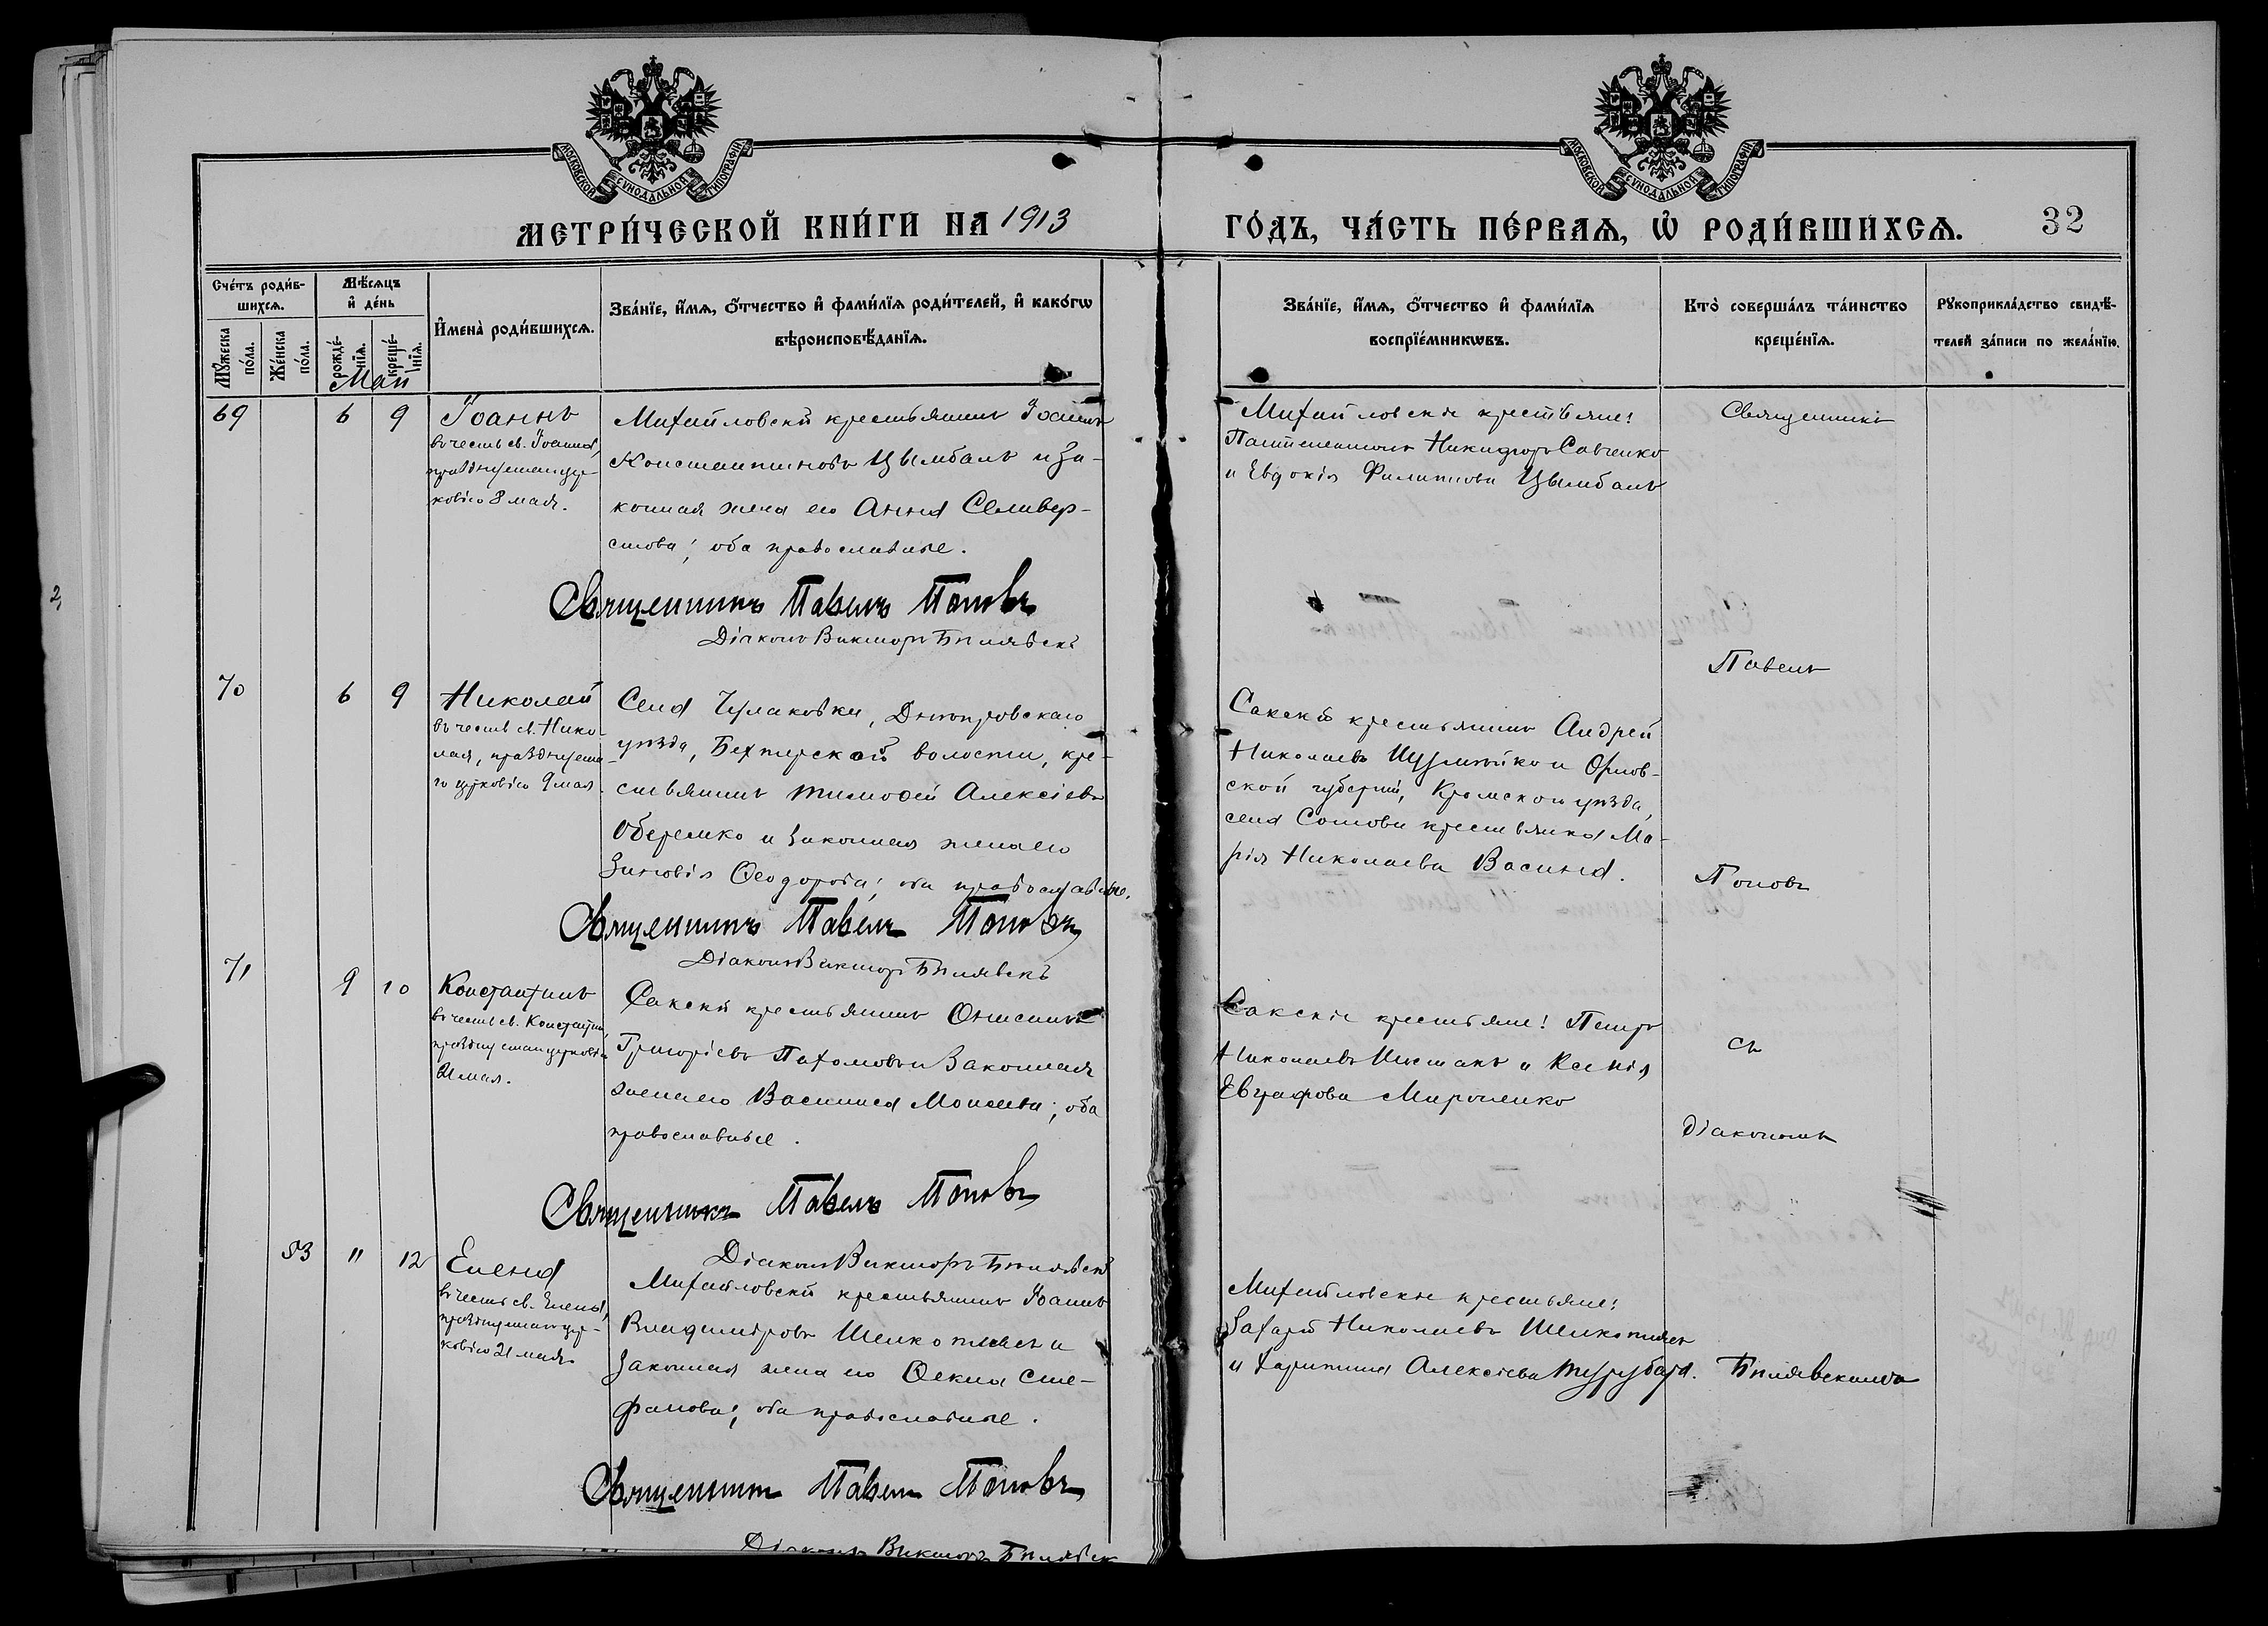 МОСКОВСКОЙ СУНОДАЛЬНОЙ ТИПОГРАФІИ
МОСКОВСКОЙ СУНОДАЛЬНОЙ ТИПОГРАФІИ
МЕТРИ́ЧЕСКОЙ КНИ́ГИ НА 1913
ГО́ДЪ, ЧА́СТЬ ПЕ́РВАѦ, Ѡ РОДИ́ВШИХСѦ. 32
Сче́тъ роди́в-
шихсѧ.
Мꙋ́жеска по́ла.
Же́нска по́ла.
Мѣ́сѧцъ
и҆ де́нь
рожде́-
нїѧ.
креще́-
нїѧ.
И҆мена̀ роди́вшихсѧ.
Зва́нїе, и҆́мѧ, ѻ҆́тчество и҆ фами́лїѧ роди́телей, и҆ како́гѡ
вѣроисповѣ́данїѧ.
Зва́нїе, и҆́мѧ, ѻ҆́тчество и҆ фами́лїѧ
воспрїе́мникѡвъ.
Кто̀ соверша́лъ та́инство
креще́нїѧ.
Рꙋкоприкла́дство свидѣ́-
телей за́писи по жела́нїю.
Май
69 6 9
Іоаннъ
въ честь св. Іоанна,
празднуемаго цер-
ковію 8 мая.
Михайловскій крестьянинъ Іоаннъ
Константиновъ Цымбалъ и за-
конная жена его Анна Селивер-
стова; оба православные.
Священникъ Павелъ Поповъ
Діаконъ Викторъ Бѣлявскій
Михайловскіе крестьяне:
Никифоръ Савченко
и Евдокія Филиппова Цымбалъ
Священникъ
Павелъ
70 6 9
Николай
въ честь св. Нико-
лая, празднуема-
го церковію 9 мая.
Села Чулаковки, Днѣпровскаго
уѣзда, Бехтерской волости, кре-
стьянинъ Тимофей Алексіевъ
Оберемко и законная жена его
Зиновія Ѳеодорова; оба православные.
Священникъ Павелъ Поповъ
Діаконъ Викторъ Бѣлявскій
Сакскій крестьянинъ Андрей
Николаевъ и Орлов-
ской губерніи, Кромскаго уѣзда,
села Сомова крестьянка Ма-
рія Николаева Васина.
Поповъ
71 9 10
Константинъ
въ честь св. Константина,
празднуемаго церковію
21 мая.
Сакскій крестьянинъ Онисимъ
Григоріевъ Пахомовъ и законная
жена его Василиса Моисеева; оба
православные.
Священникъ Павелъ Поповъ
Діаконъ Викторъ Бѣлявскій
Сакскіе крестьяне: Петръ
Николаевъ и Ксенія
Евграфова Мироненко
съ
діакономъ
53 11 12
Елена
въ честь св. Елены,
празднуемой цер-
ковію 21 мая.
Михайловскій крестьянинъ Іоаннъ
Владиміровъ Шелкоплясъ и
законная жена его Ѳекла Сте-
фанова; оба православные.
Священникъ Павелъ Поповъ
Діаконъ Викторъ Бѣлявскій
Михайловскіе крестьяне:
Захарій Николаевъ Шелкоплясъ
и Харитина Алексіева
Бѣлявскимъ